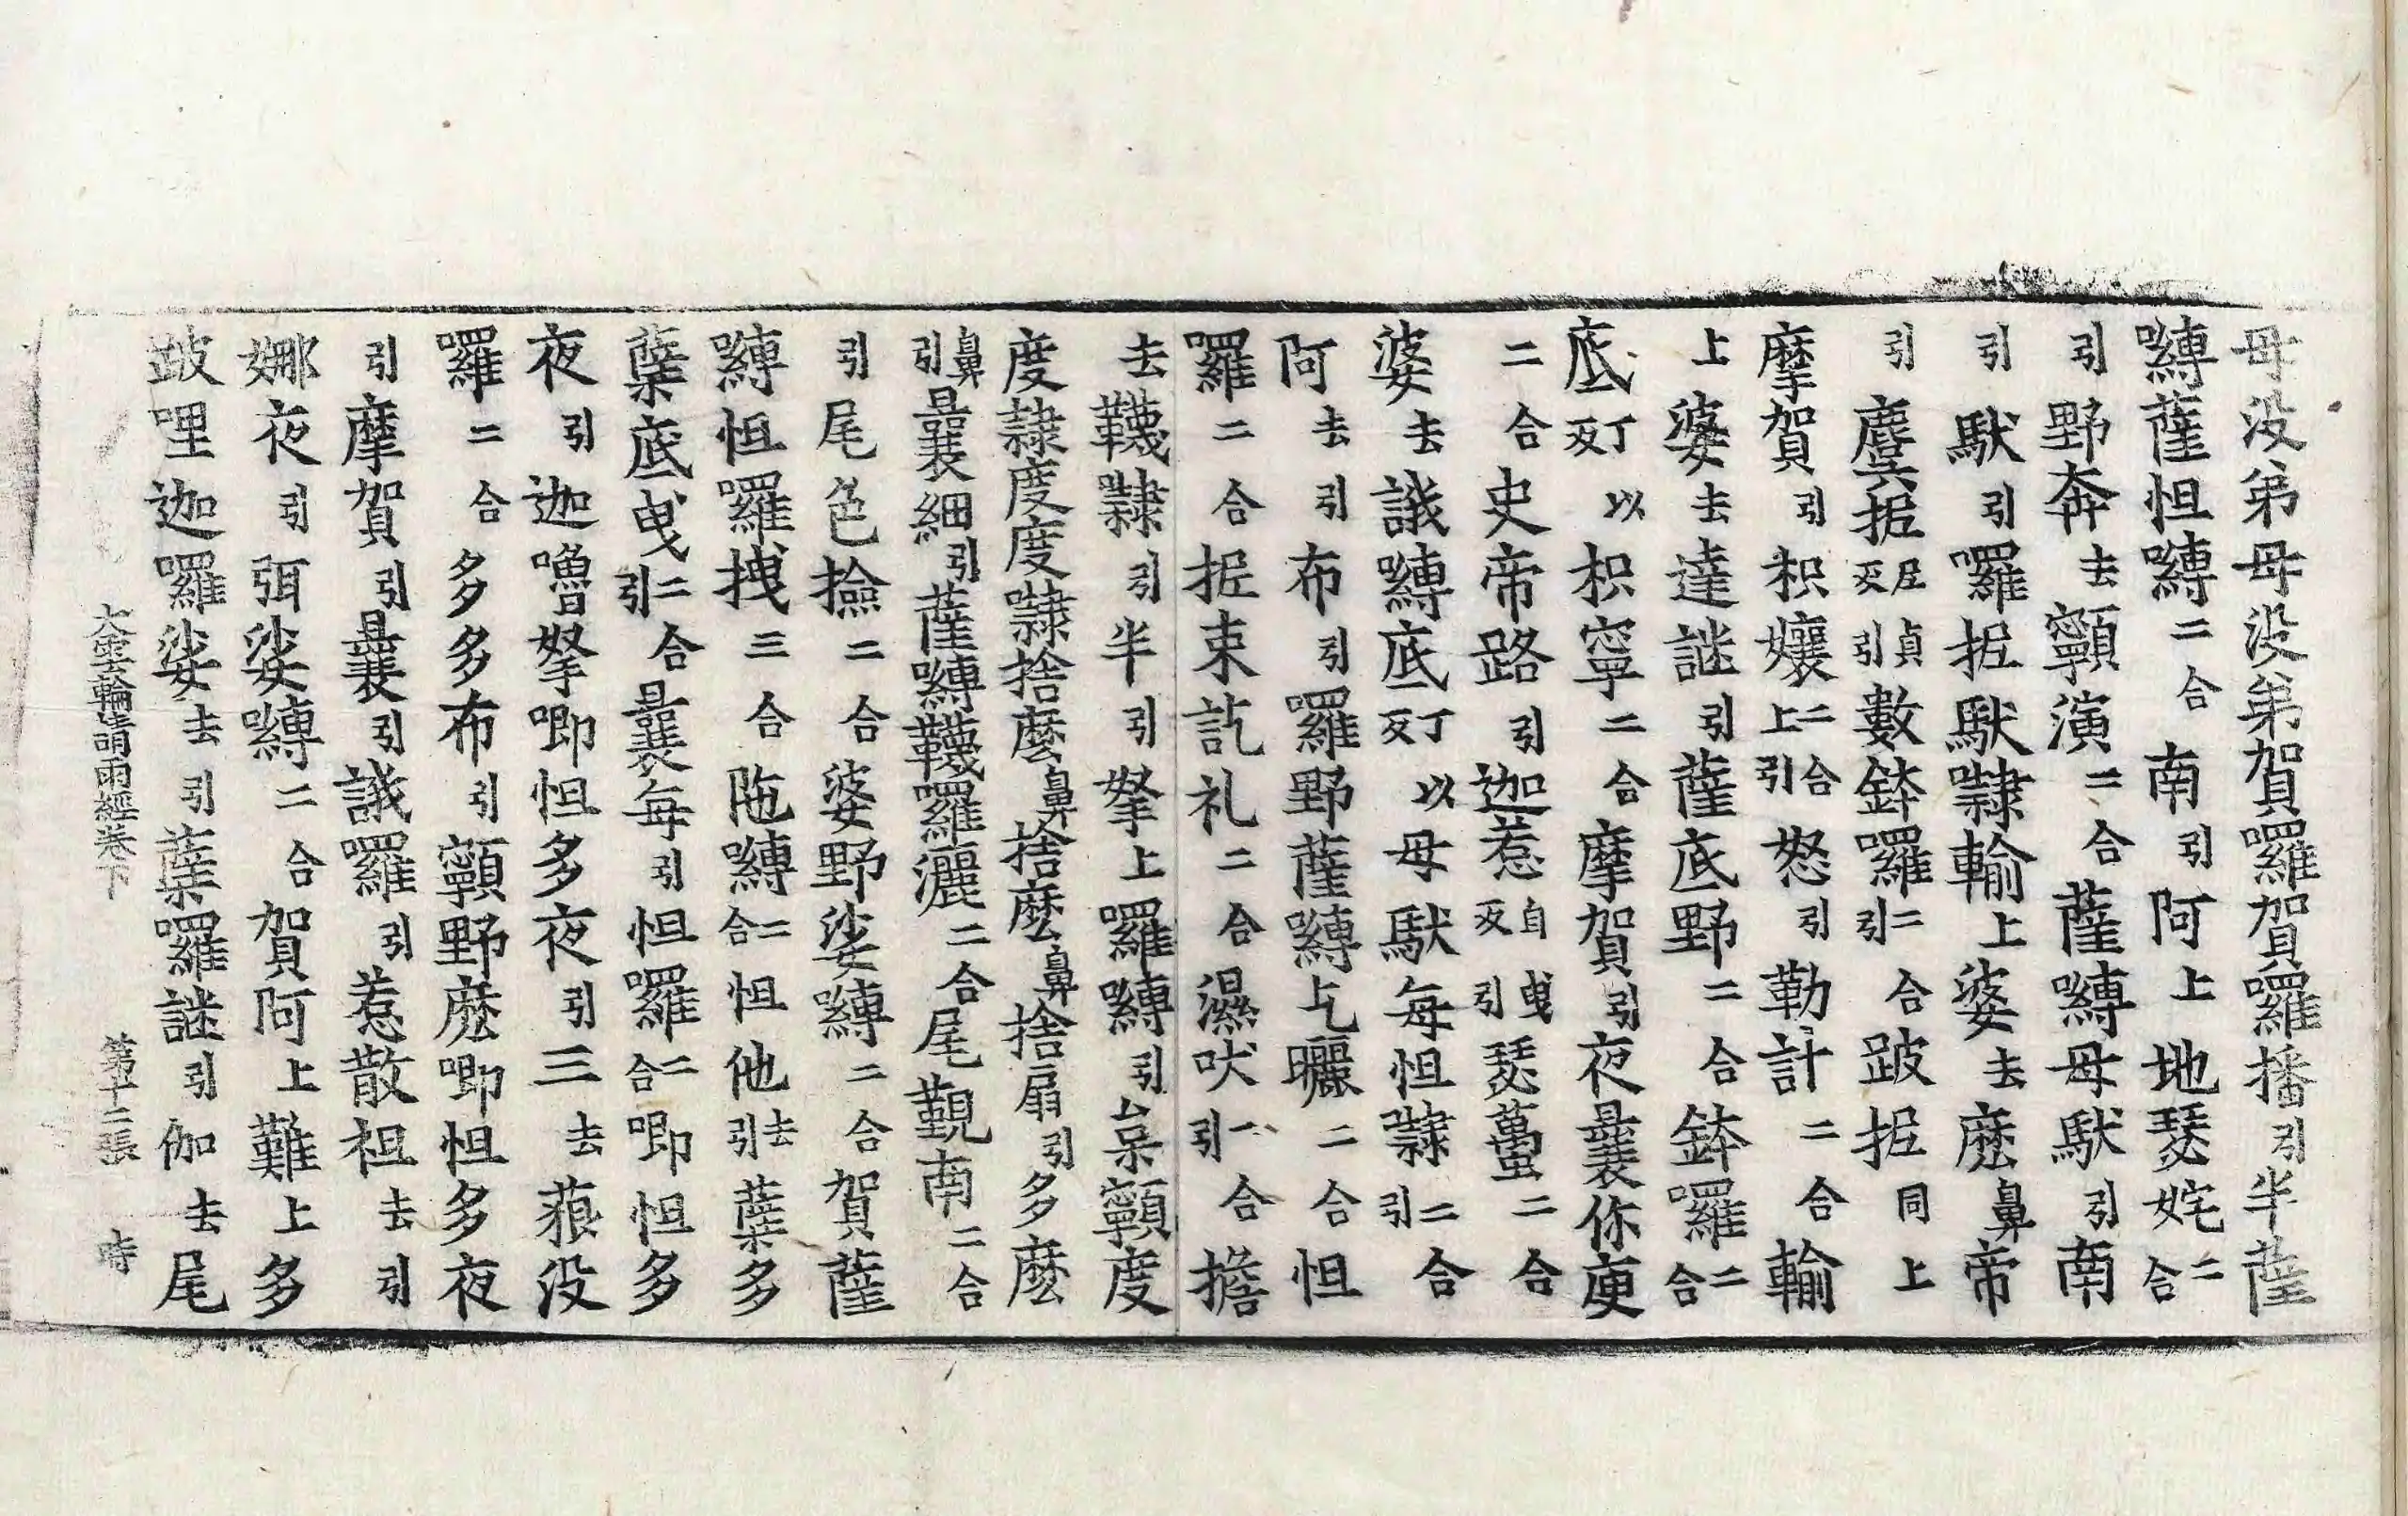 母没弟母没弟賀囉賀囉播引半薩
嚩薩怛嚩二合南引阿上地瑟姹二合
引野奔去顙演二合薩嚩母馱引南
引馱引囉抳馱隷輸上婆去麽鼻帝
引麌抳尼貞反引數鉢囉二合引跛抳同上
摩賀引枳孃二合上引怒引勒計二合輸
上婆去達謎引薩底野二合鉢囉二合
底丁以反枳寧二合摩賀引夜曩你庾
二合史帝路引迦惹自曳反引瑟蠆二合
婆去誐嚩底丁以反母馱每怛隷二合引
阿去引布引囉野薩嚩乞曬二合怛
囉二合抳束訖礼二合濕吠二合引擔
去韈隷引半引拏上囉嚩引臬顙度
度隷度度隷捨麽鼻捨麽鼻捨扇引多麽
鼻引曩細引薩嚩韈囉灑二合尾覲南二合
引尾色撿二合婆野娑嚩二合賀薩
嚩怛囉拽三合陁嚩二合怛他去引蘖多
蘖底曳二合引曩每引怛囉二合唧怛多
夜引迦嚕拏唧怛多夜引三去蒗没
囉二合多多布引顙野麽唧怛多夜
引摩賀引曩引誐囉引惹散祖去引
娜夜引弭娑嚩二合賀阿上難上多
跛哩迦囉娑去引蘖囉謎引伽去尾
大雲輪請雨經卷下　第十二張　時